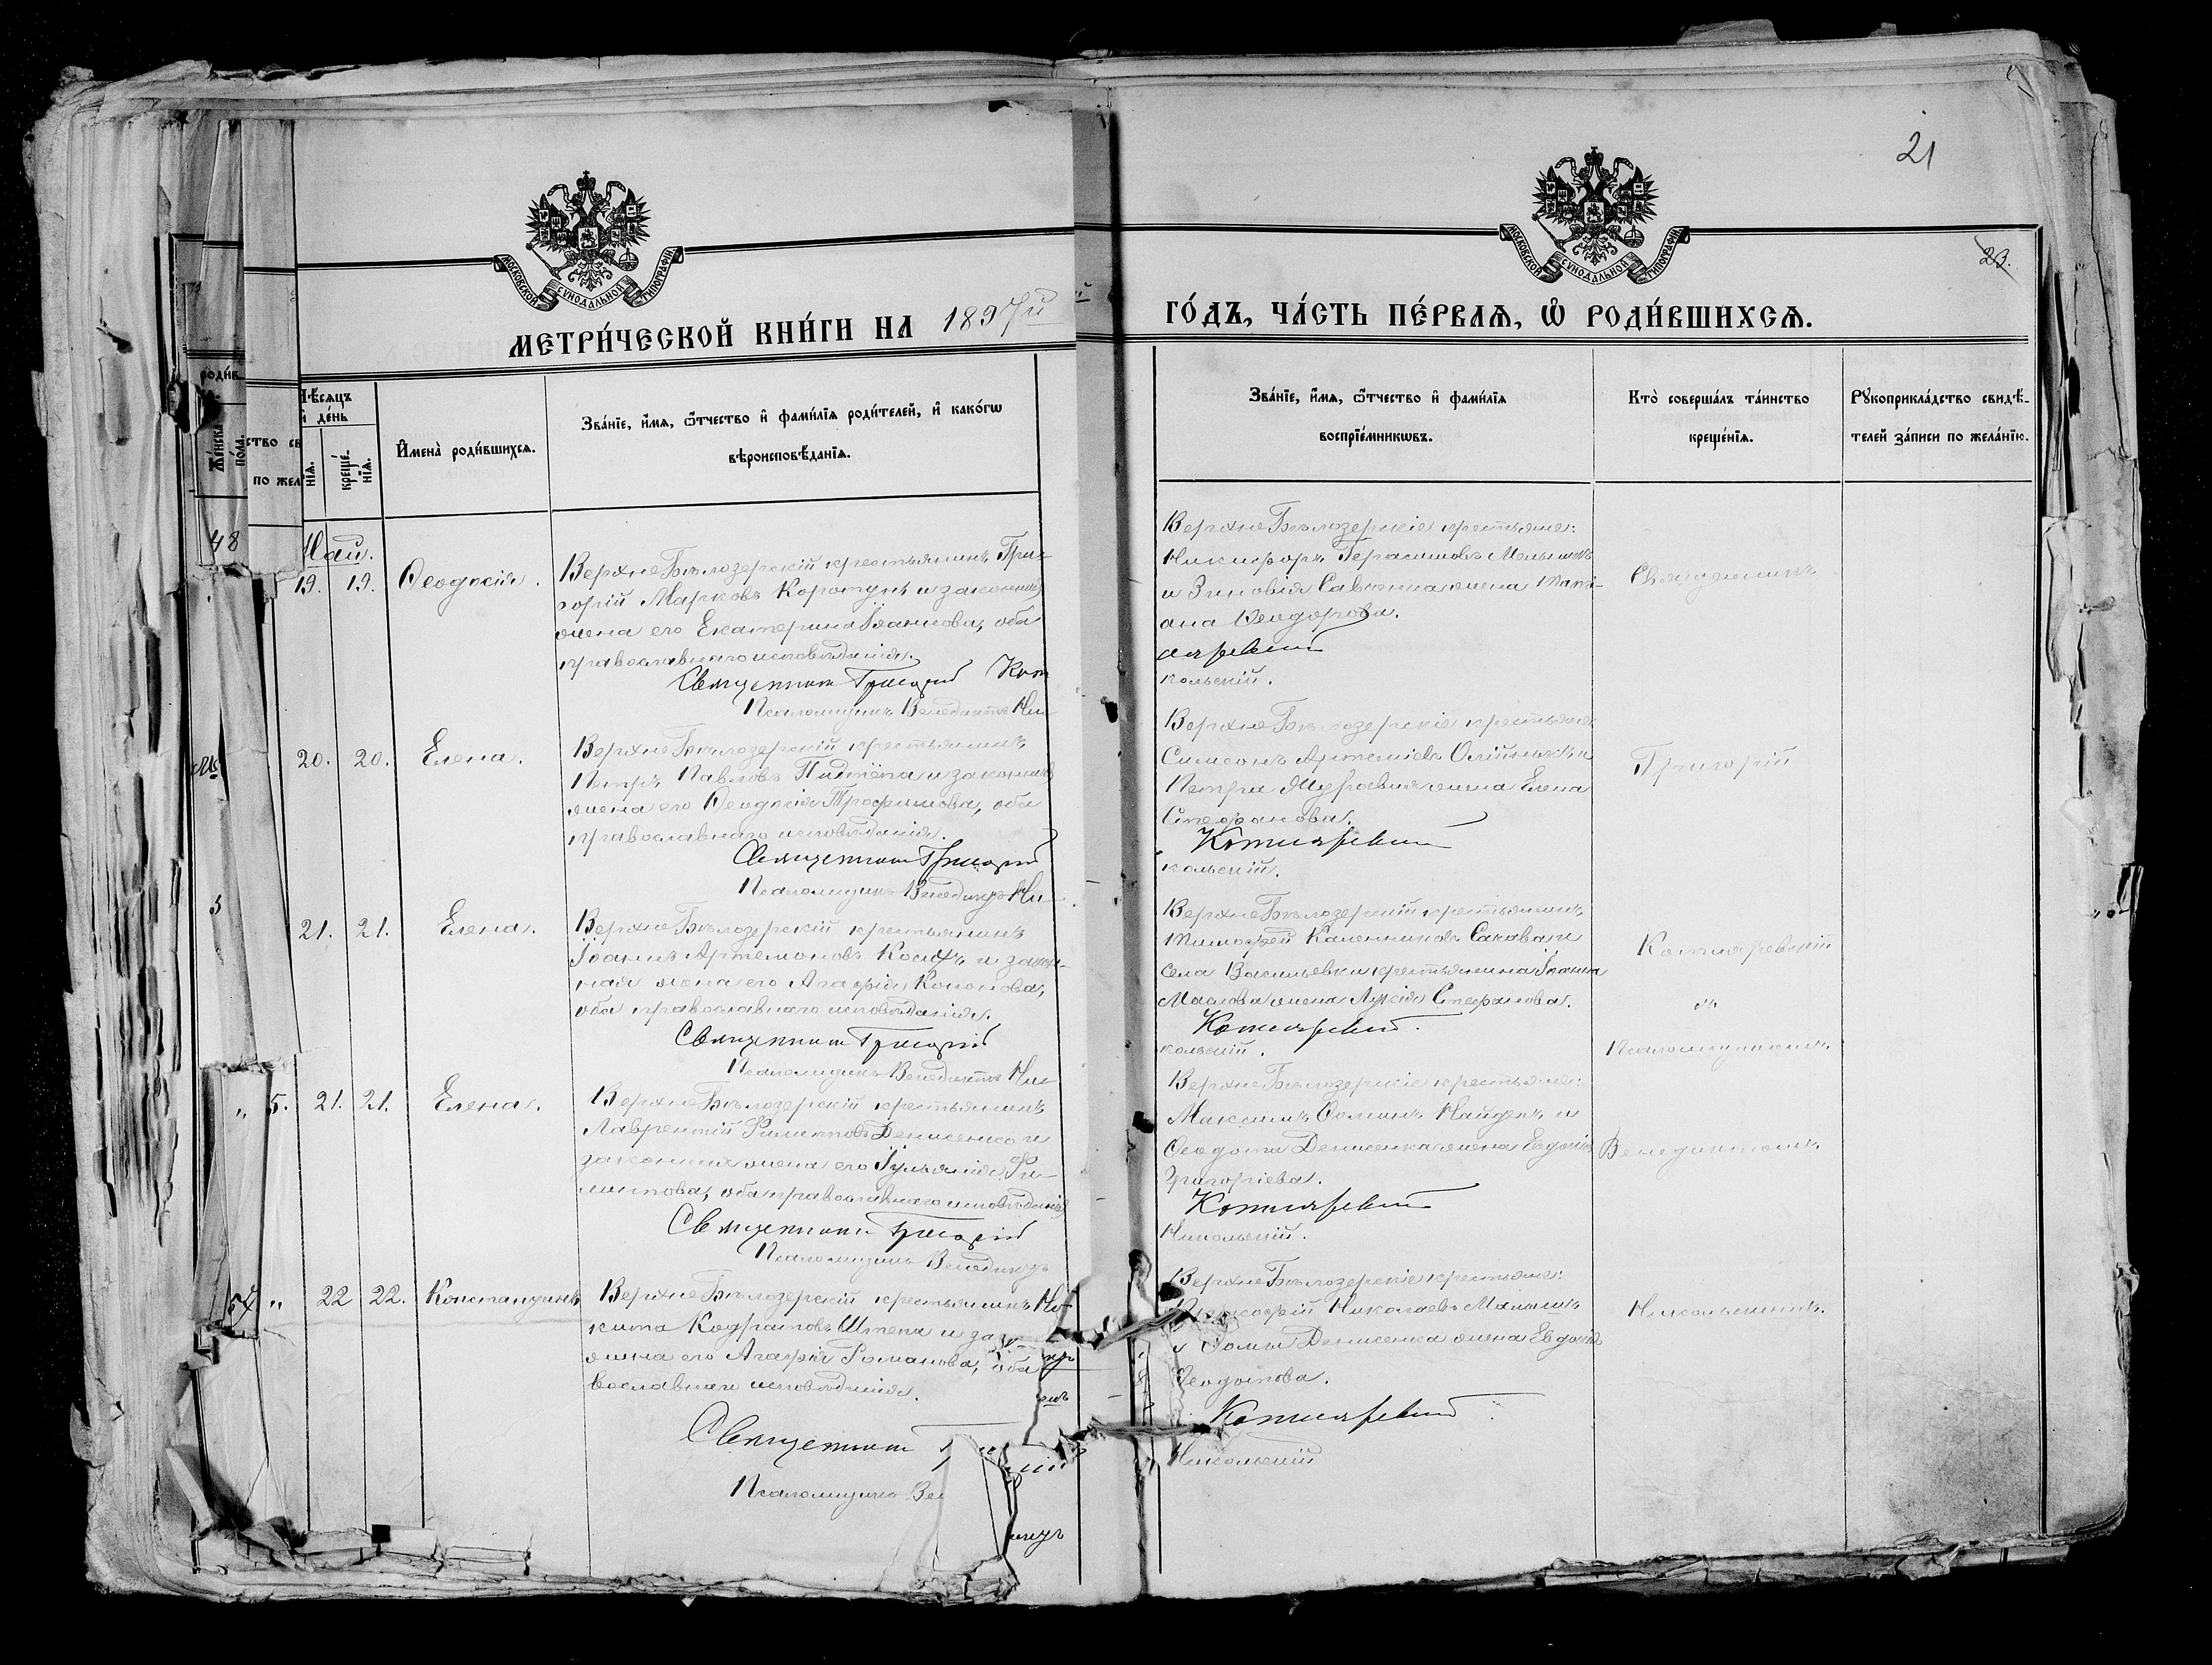 21
23.
МОСКОВСКОЙ СѴНОДАЛЬНОЙ ТИПОГРАФІИ
МОСКОВСКОЙ СѴНОДАЛЬНОЙ ТИПОГРАФІИ
МЕТРИ́ЧЕСКОЙ КНИ́ГИ НА 1897й
ГО́ДЪ, ЧА́СТЬ ПЕ́РВАѦ, Ѡ҆ РОДИ́ВШИХСѦ.
роди́в
Же́нска
по́ла.
ство св
по жел
Мѣ́сѧцъ
и҆ де́нь
нїѧ.
креще́-
нїѧ.
И҆мена̀ роди́вшихсѧ.
Зва́нїе, и҆́мѧ, ѻ҆́тчество и҆ фами́лїѧ роди́телей, и҆ како́гѡ
вѣроисповѣ́данїѧ.
Зва́нїе, и҆́мѧ, ѻ҆́тчество и҆ фами́лїѧ
воспрїе́мникѡвъ.
Кто̀ соверша́лъ та́инство
креще́нїѧ.
Рꙋкоприкла́дство свидѣ́-
телей за́писи по жела́нїю.
48
Май.
19. 19. Ѳеодосія.
ВерхнеБѣлозерскій крестьянинъ Гри-
горій Марковъ Коротунъ и законная
жена его Екатерина Іоаннова, оба
православнаго исповѣданія.
Священникъ Григорій Кот
Псаломщикъ Венедиктъ Ни-
ВерхнеБѣлозерскіе крестьяне:
Никифоръ Герасимовъ Мельникъ
и Зиновія Савченка жена Тати-
ана Ѳеодорова.
ляревскій
кольскій.
Священникъ
20. 20. Елена.
ВерхнеБѣлозерскій крестьянинъ
Петръ Павловъ и законная
жена его Ѳеодосія Трофимова, оба
православнаго исповѣданія.
Священникъ Григорій
Псаломщикъ Венедиктъ Ни-
ВерхнеБѣлозерскіе крестьяне
Симеонъ Артеміевъ Олійникъ и
Петра жена Елена
Стефанова.
Котляревскій
кольскій.
Григорій
21. 21. Елена.
ВерхнеБѣлозерскій крестьянинъ
Іоаннъ Артемоновъ и закон-
ная жена его Агафія Кононова,
оба православнаго исповѣданія.
Священникъ Григорій
Псаломщикъ Венедиктъ Ни-
ВерхнеБѣлозерскій крестьянинъ
Тимофей и
села Васильевки крестьянина Іоанна
Маслова жена Лукія Стефанова.
Котляревскій.
кольскій.
Котляревскій
съ
Псаломщикомъ
" 5. 21. 21. Елена.
ВерхнеБѣлозерскій крестьянинъ
Лаврентій Филипповъ Денисенко и
законная жена его Іуліанія Фи-
липпова, оба православнаго исповѣданія
Священникъ Григорій
Псаломщикъ Венедиктъ
ВерхнеБѣлозерскіе крестьяне:
Максимъ Ѳоминъ Найденъ и
Ѳеодота Денисенка жена Евдокія
Григоріева.
Котляревскій
Никольскій.
Венедиктомъ
57 " 22 22. Константинъ
ВерхнеБѣлозерскій крестьянинъ Ни-
кита Кодратовъ Штепа и за
жена его Агафія Романова, оба пр
вославнаго исповѣданія.
Священникъ
Псаломщикъ Вен
ВерхнеБѣлозерскіе крестьяне:
Николаевъ
и Ѳомы Денисенка жена Евдокія
Ѳеодотова.
Котляревскій
Никольскій
Никольскимъ.